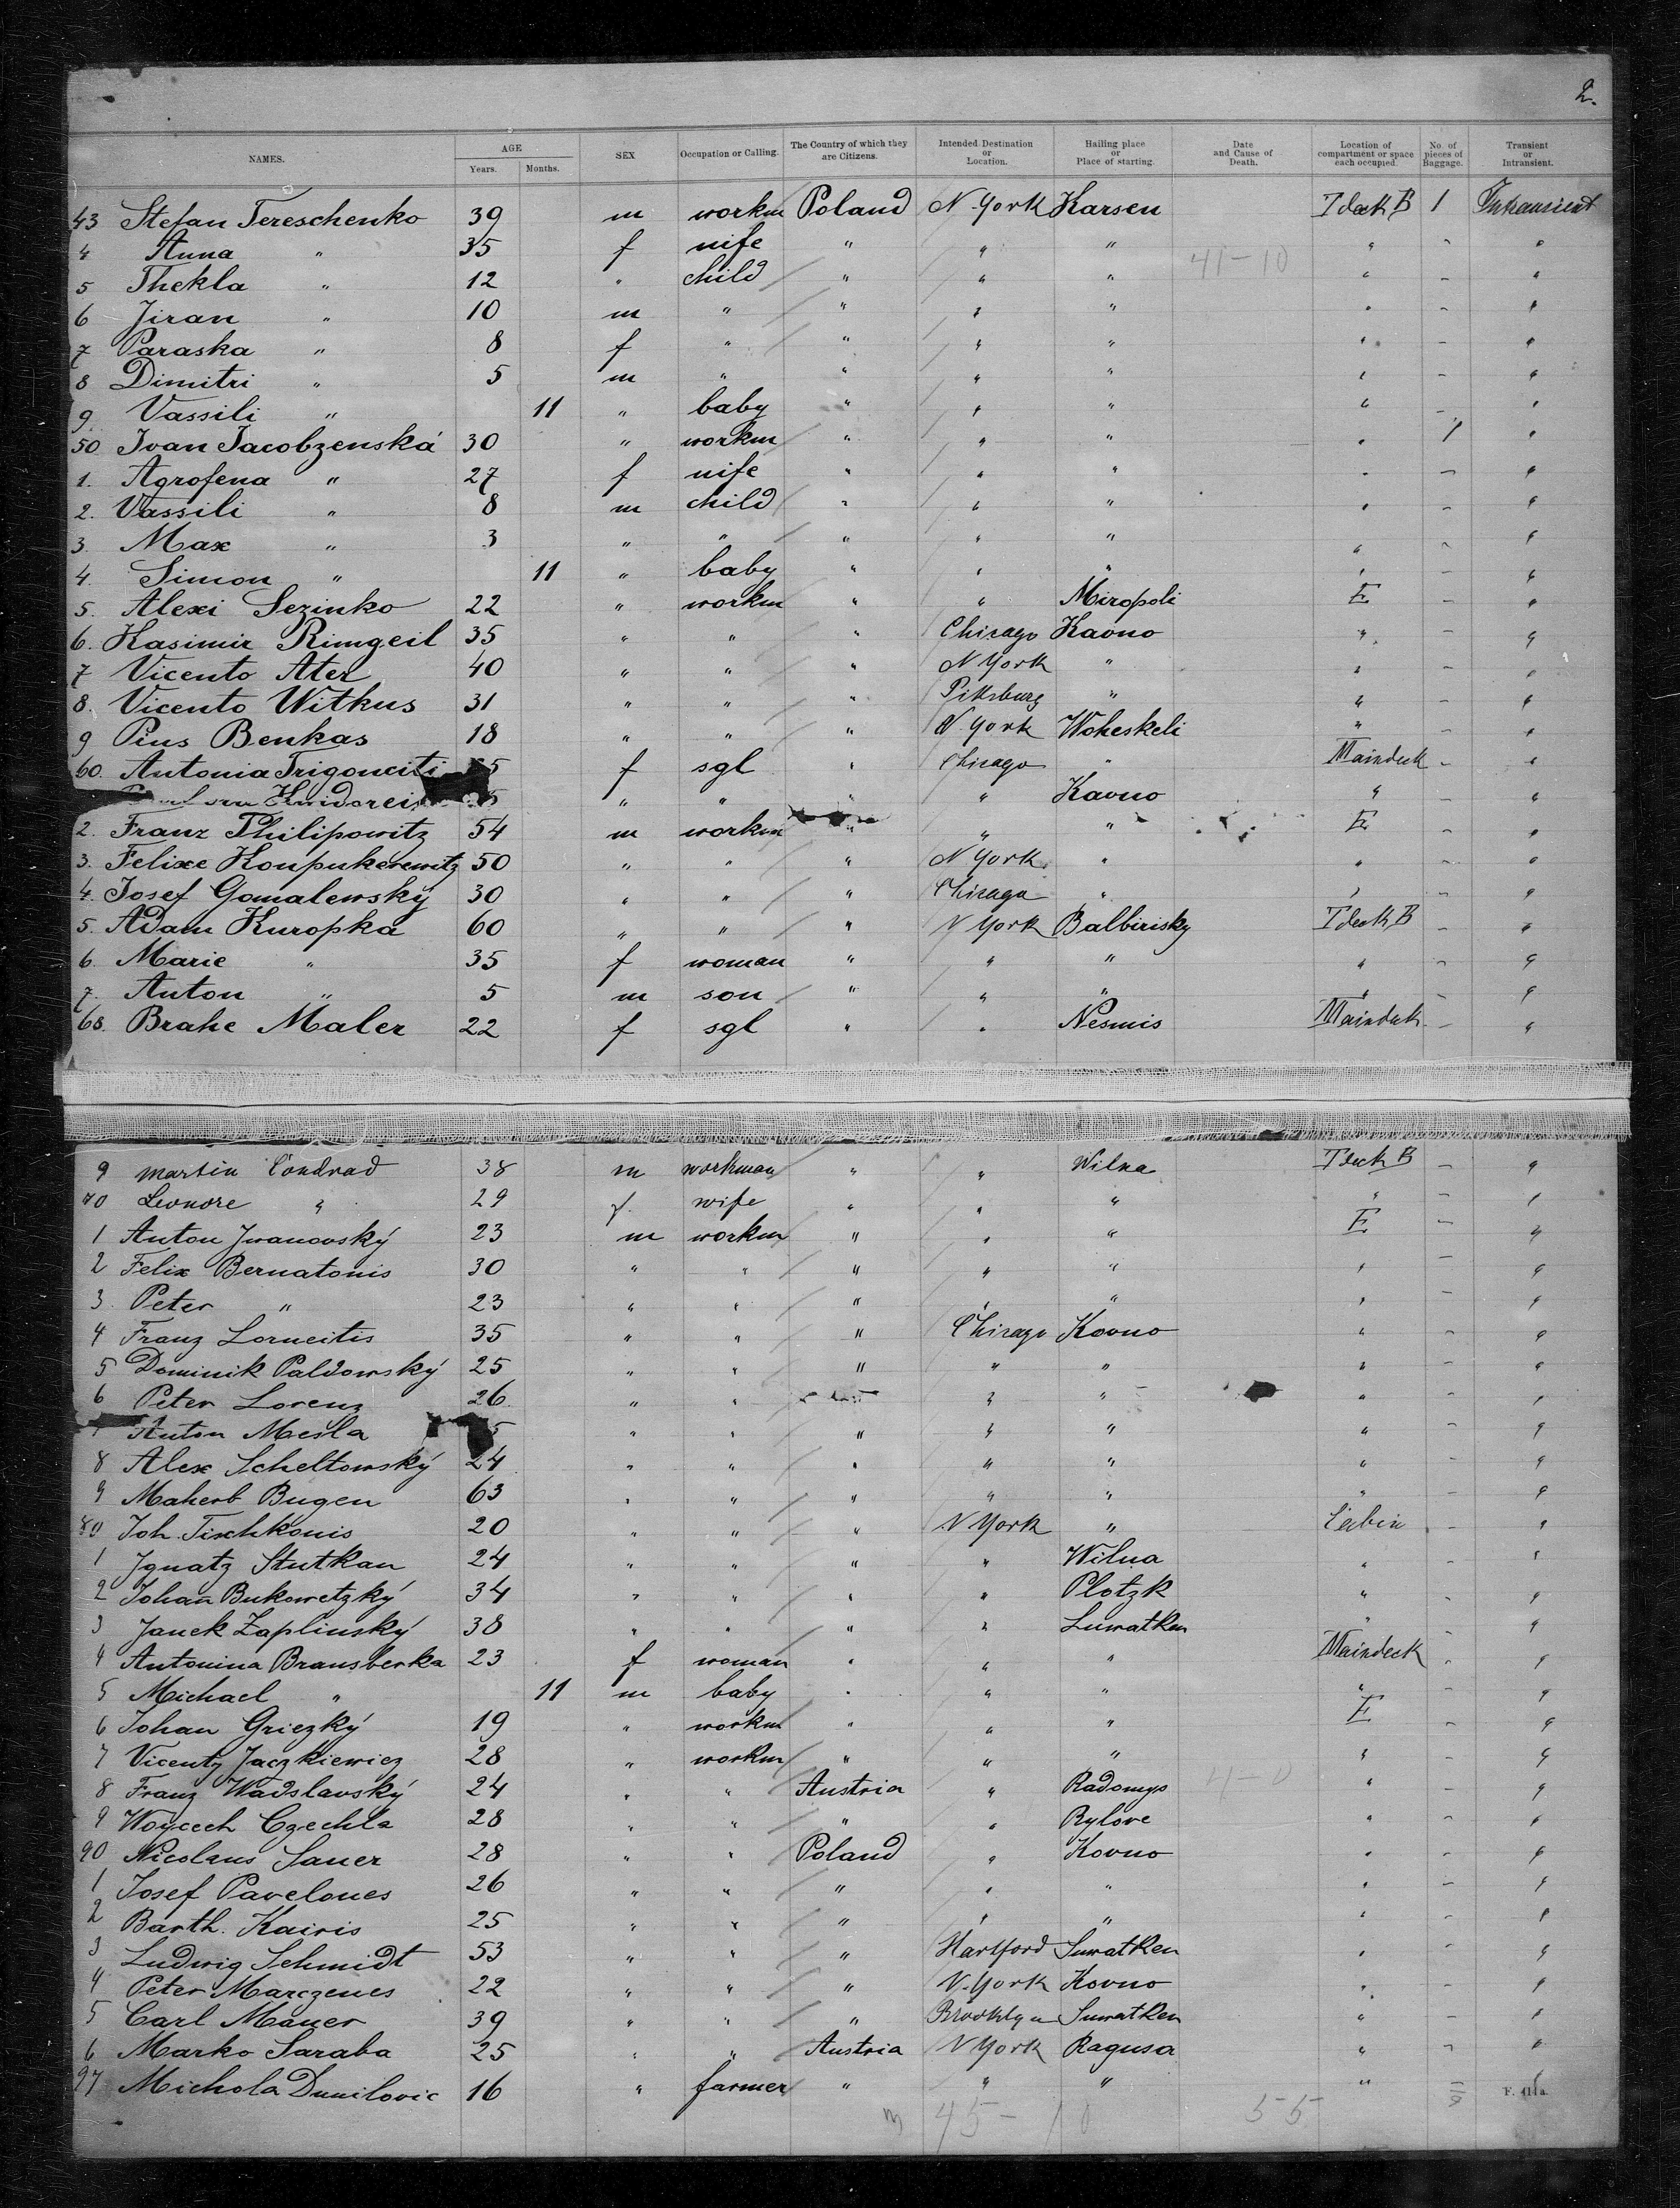 2.
NAMES. AGE Years. Months. SEX Occupation or Calling. The Country of which they are Citizens. Intended Destination or Location. Hailing place or Place of starting. Date and Cause of Death. Location of compartment or space each occupied. No. of pieces of Baggage. Transient or Intransient.
43 Stefan Tereschenko 39 m workm Poland N. York Karsen T deck B 1 Intransient
4 Anna " 35 f wife " " " 41-10 " - "
5 Thekla " 12 " child " " " " - "
6 Jiran " 10 m " " " " " - "
7 Paraska " 8 f " " " " " - "
8 Dimitri " 5 m " " " " " - "
9. Vassili " 11 " baby " " " " - "
50 Ivan Jacobzenská 30 " workm " " " " 1 "
1. Agrofena " 27 f wife " " " " - "
2. Vassili " 8 m child " " " " - "
3. Max " 3 " " " " " " - "
4. Simon " 11 " baby " " " " - "
5. Alexi Sezinko 22 " workm " " Miropoli E - "
6. Kasimir Rimgeil 35 " " " Chicago Kavno " - "
7 Vicento Ater 40 " " " N York " " - "
8. Vicento Witkus 31 " " " Pittsburg " " - "
9 Pius Benkas 18 " " " N. York Woheskeli " - "
60. Antonia Trigoneiti 5 f sgl " Chicago " Maindeck - "
" " " " Kavno " - "
2. Franz Philipowitz 54 m workm " " " E - "
3. Felixe 50 " " " N York " " - "
4. Josef Gomalewský 30 " " " Chicago " " - "
5. Adam Kuropka 60 " " " N York Balbirisky T deck B - "
6. Marie " 35 f woman " " " " - "
7. Anton " 5 m son " " " " - "
68. Brahe Maler 22 f sgl " " Nesmis Maindeck - "
9 Martin Condrad 38 m workman " " Wilna T deck B - "
70 Leonore " 29 f. wife " " " " - "
1 Anton Jwanovský 23 m workm " " " E - "
2 Felix Bernatonis 30 " " " " " " - "
3. Peter " 23 " " " " " " - "
4 Franz Lorneitis 35 " " " Chicago Kovno " - "
5 Dominik Paldowský 25 " " " " " " - "
6 Peter Lorenz 26 " " " " " - "
Anton Mesla 5 " " " " " " - "
8 Alex Scheltowský 24 " " " " " " - "
9 Maherb Bugen 63 " " " " " " - "
80 Joh. Tischkonis 20 " " " N York " Cabin - "
1 Jgnatz Stutkan 24 " " " " Wilna " - "
2 Johan Bukowetzký 34 " " " " Plotzk " - "
3 Janek Zaplinský 38 " " " " Suwalken " - "
4 Antonina Bransberka 23 f woman " " " Maindeck - "
5 Michael " 11 m baby " " " " - "
6 Johan Griezký 19 " workm " " " E - "
7 Vicenty Jaczkiewicz 28 " workm " " " " - "
8 Franz Wadslavský 24 " " Austria " Radomys 4-0 " - "
9 Woycech Czechla 28 " " " " Rylove " - "
90 Nicolaus Sauer 28 " " Poland " Kovno " - "
1 Josef Pavelones 26 " " " " " " - "
2 Barth. Kairis 25 " " " " " " - "
3 Ludwig Schmidt 53 " " " Hartford Suwalken " - "
4 Peter Marczenes 22 " " " N. York Kovno " - "
5 Carl Mauer 39 " " " Brooklyn Suwalken " - "
6 Marko Saraba 25 " " Austria N York Ragusa " - "
97 Michola Dunilovic 16 " farmer " " " "
45-10 55